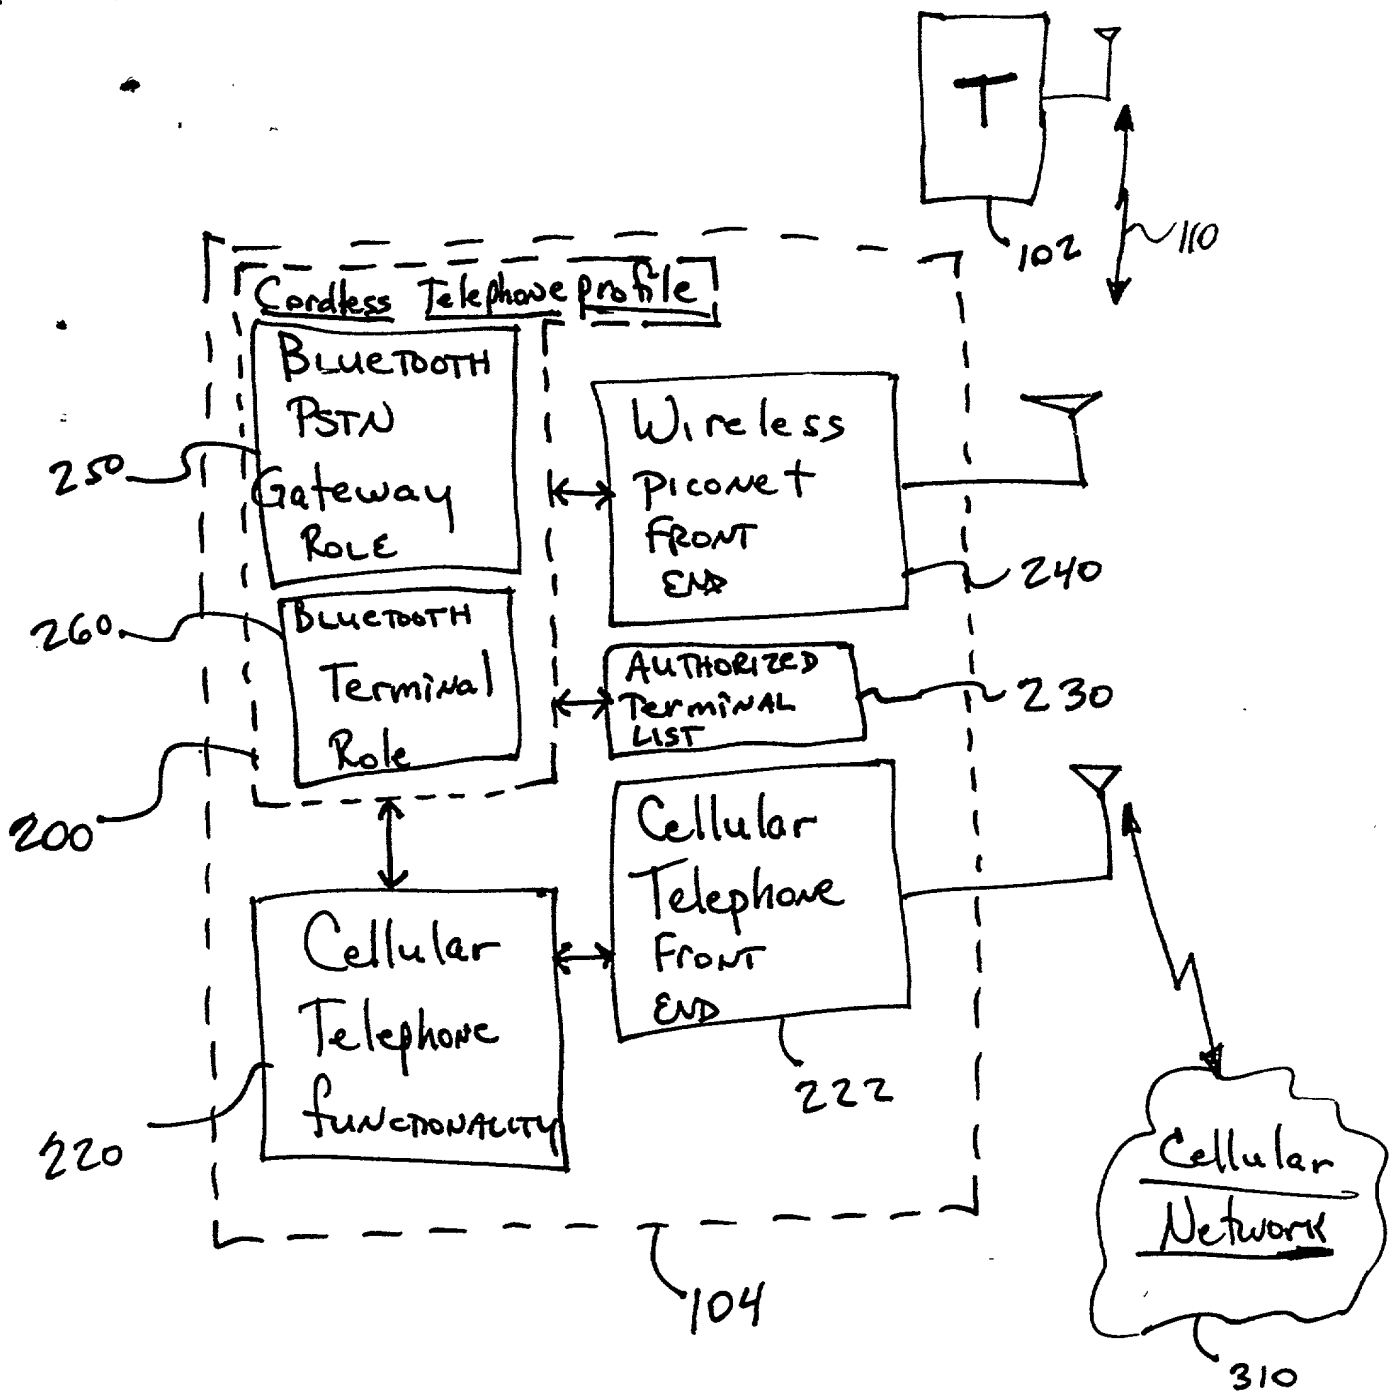 T
102
110
Cordless Telephone profile
BLUETOOTH
PSTN
Gateway
ROLE
250
Wireless
PICONET
FRONT
END
240
260
BLUETOOTH
Terminal
Role
AUTHORIZED
TERMINAL
LIST
230
200
Cellular
Telephone
FRONT
END
222
Cellular
Telephone
FUNCTIONALITY
220
Cellular
Network
104
310